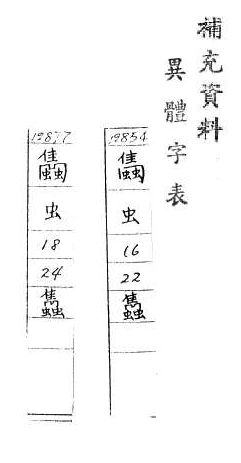 補充資料
異體字表
19854
虫
16
22
19877
虫
18
24